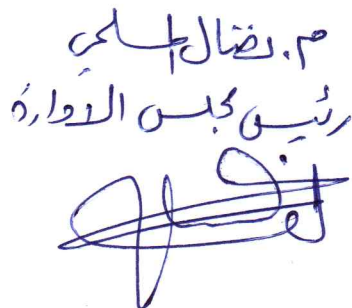 م. نضال السلحي
رئيس مجلس الادارة